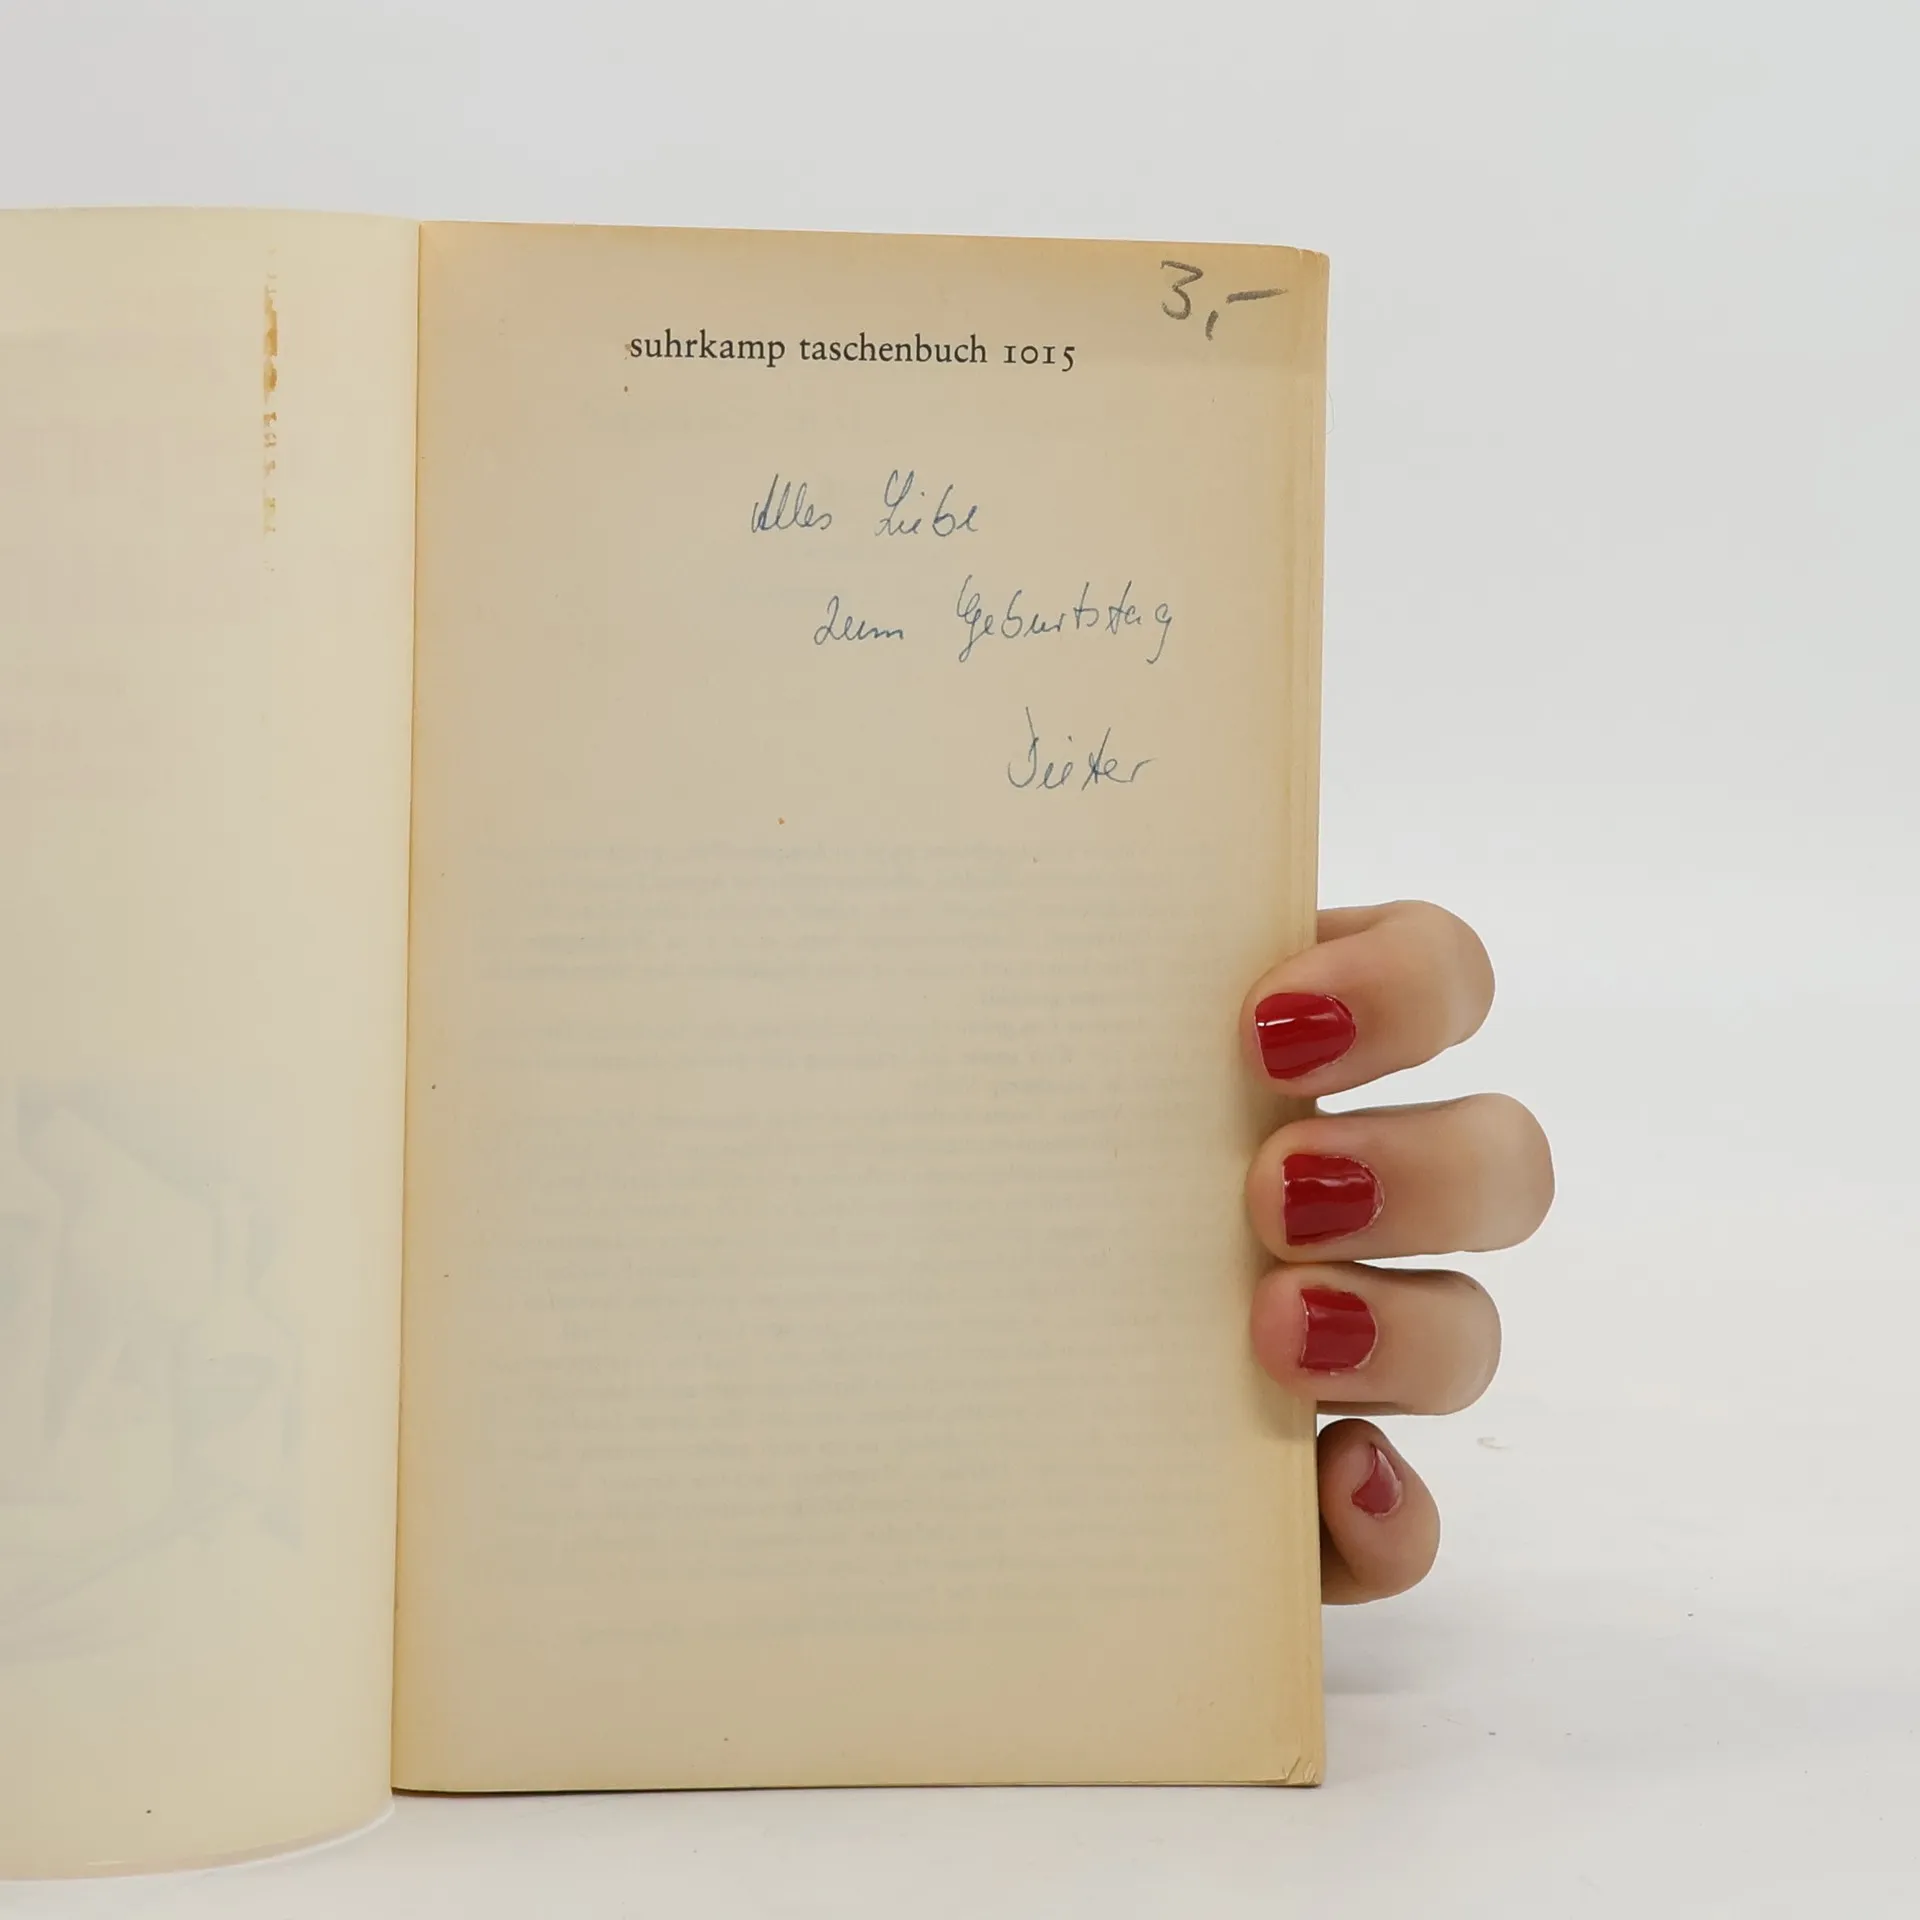 3,-
suhrkamp taschenbuch 1015
Alles Liebe
zum Geburtstag
Dieter